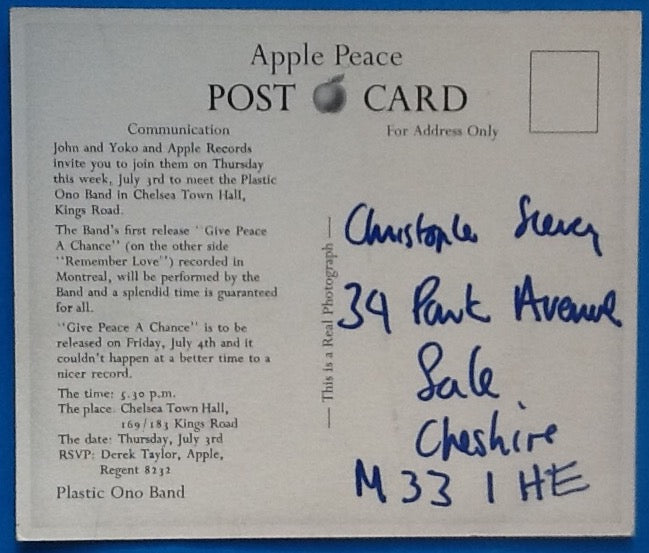 Apple Peace
POST CARD
Communication
John and Yoko and Apple Records
invite you to join them on Thursday
this week, July 3rd to meet the Plastic
Ono Band in Chelsea Town Hall,
Kings Road.
The Band's first release "Give Peace
A Chance" (on the other side
"Remember Love") recorded in
Montreal, will be performed by the
Band and a splendid time is guaranteed
for all.
"Give Peace A Chance" is to be
released on Friday, July 4th and it
couldn't happen at a better time to a
nicer record.
The time: 5.30 p.m.
The place: Chelsea Town Hall,
169/183 Kings Road
The date: Thursday, July 3rd
RSVP: Derek Taylor, Apple,
Regent 8232
Plastic Ono Band
This is a Real Photograph
For Address Only
Christopher
Park Avenue
Sale
Cheshire
M33 1HE